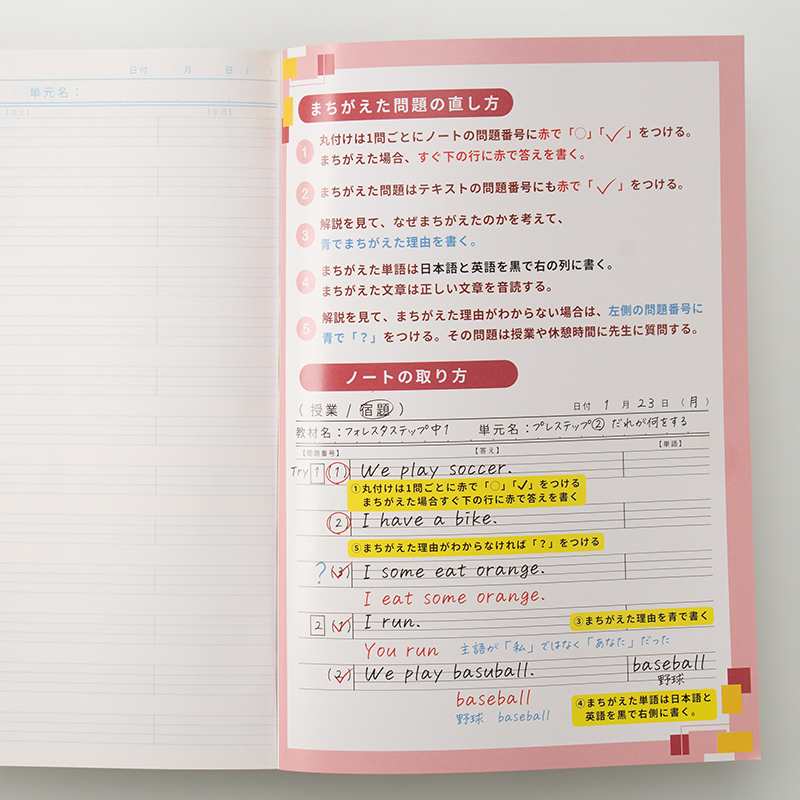 日付 月 日 ( )
単元名：
【答え】 【単語】
まちがえた問題の直し方
1 丸付けは1問ごとにノートの問題番号に赤で「○」「✓」をつける。
まちがえた場合、すぐ下の行に赤で答えを書く。
2 まちがえた問題はテキストの問題番号にも赤で「✓」をつける。
3 解説を見て、なぜまちがえたのかを考えて、
青でまちがえた理由を書く。
4 まちがえた単語は日本語と英語を黒で右の列に書く。
まちがえた文章は正しい文章を音読する。
5 解説を見て、まちがえた理由がわからない場合は、左側の問題番号に
青で「？」をつける。その問題は授業や休憩時間に先生に質問する。
ノートの取り方
( 授業 / 宿題 ) 日付 1 月 23 日 ( 月 )
教材名：フォレスタステップ中1 単元名：プレステップ② だれが何をする
【問題番号】 【答え】 【単語】
Try 1 (1) We play soccer.
①丸付けは1問ごとに赤で「○」「✓」をつける
まちがえた場合すぐ下の行に赤で答えを書く
(2) I have a bike.
⑤まちがえた理由がわからなければ「？」をつける
? (3) I some eat orange.
I eat some orange.
2 (1) I run. ③まちがえた理由を青で書く
You run 主語が「私」ではなく「あなた」だった
(2) We play basuball. baseball
野球
baseball ④まちがえた単語は日本語と
野球 baseball 英語を黒で右側に書く。